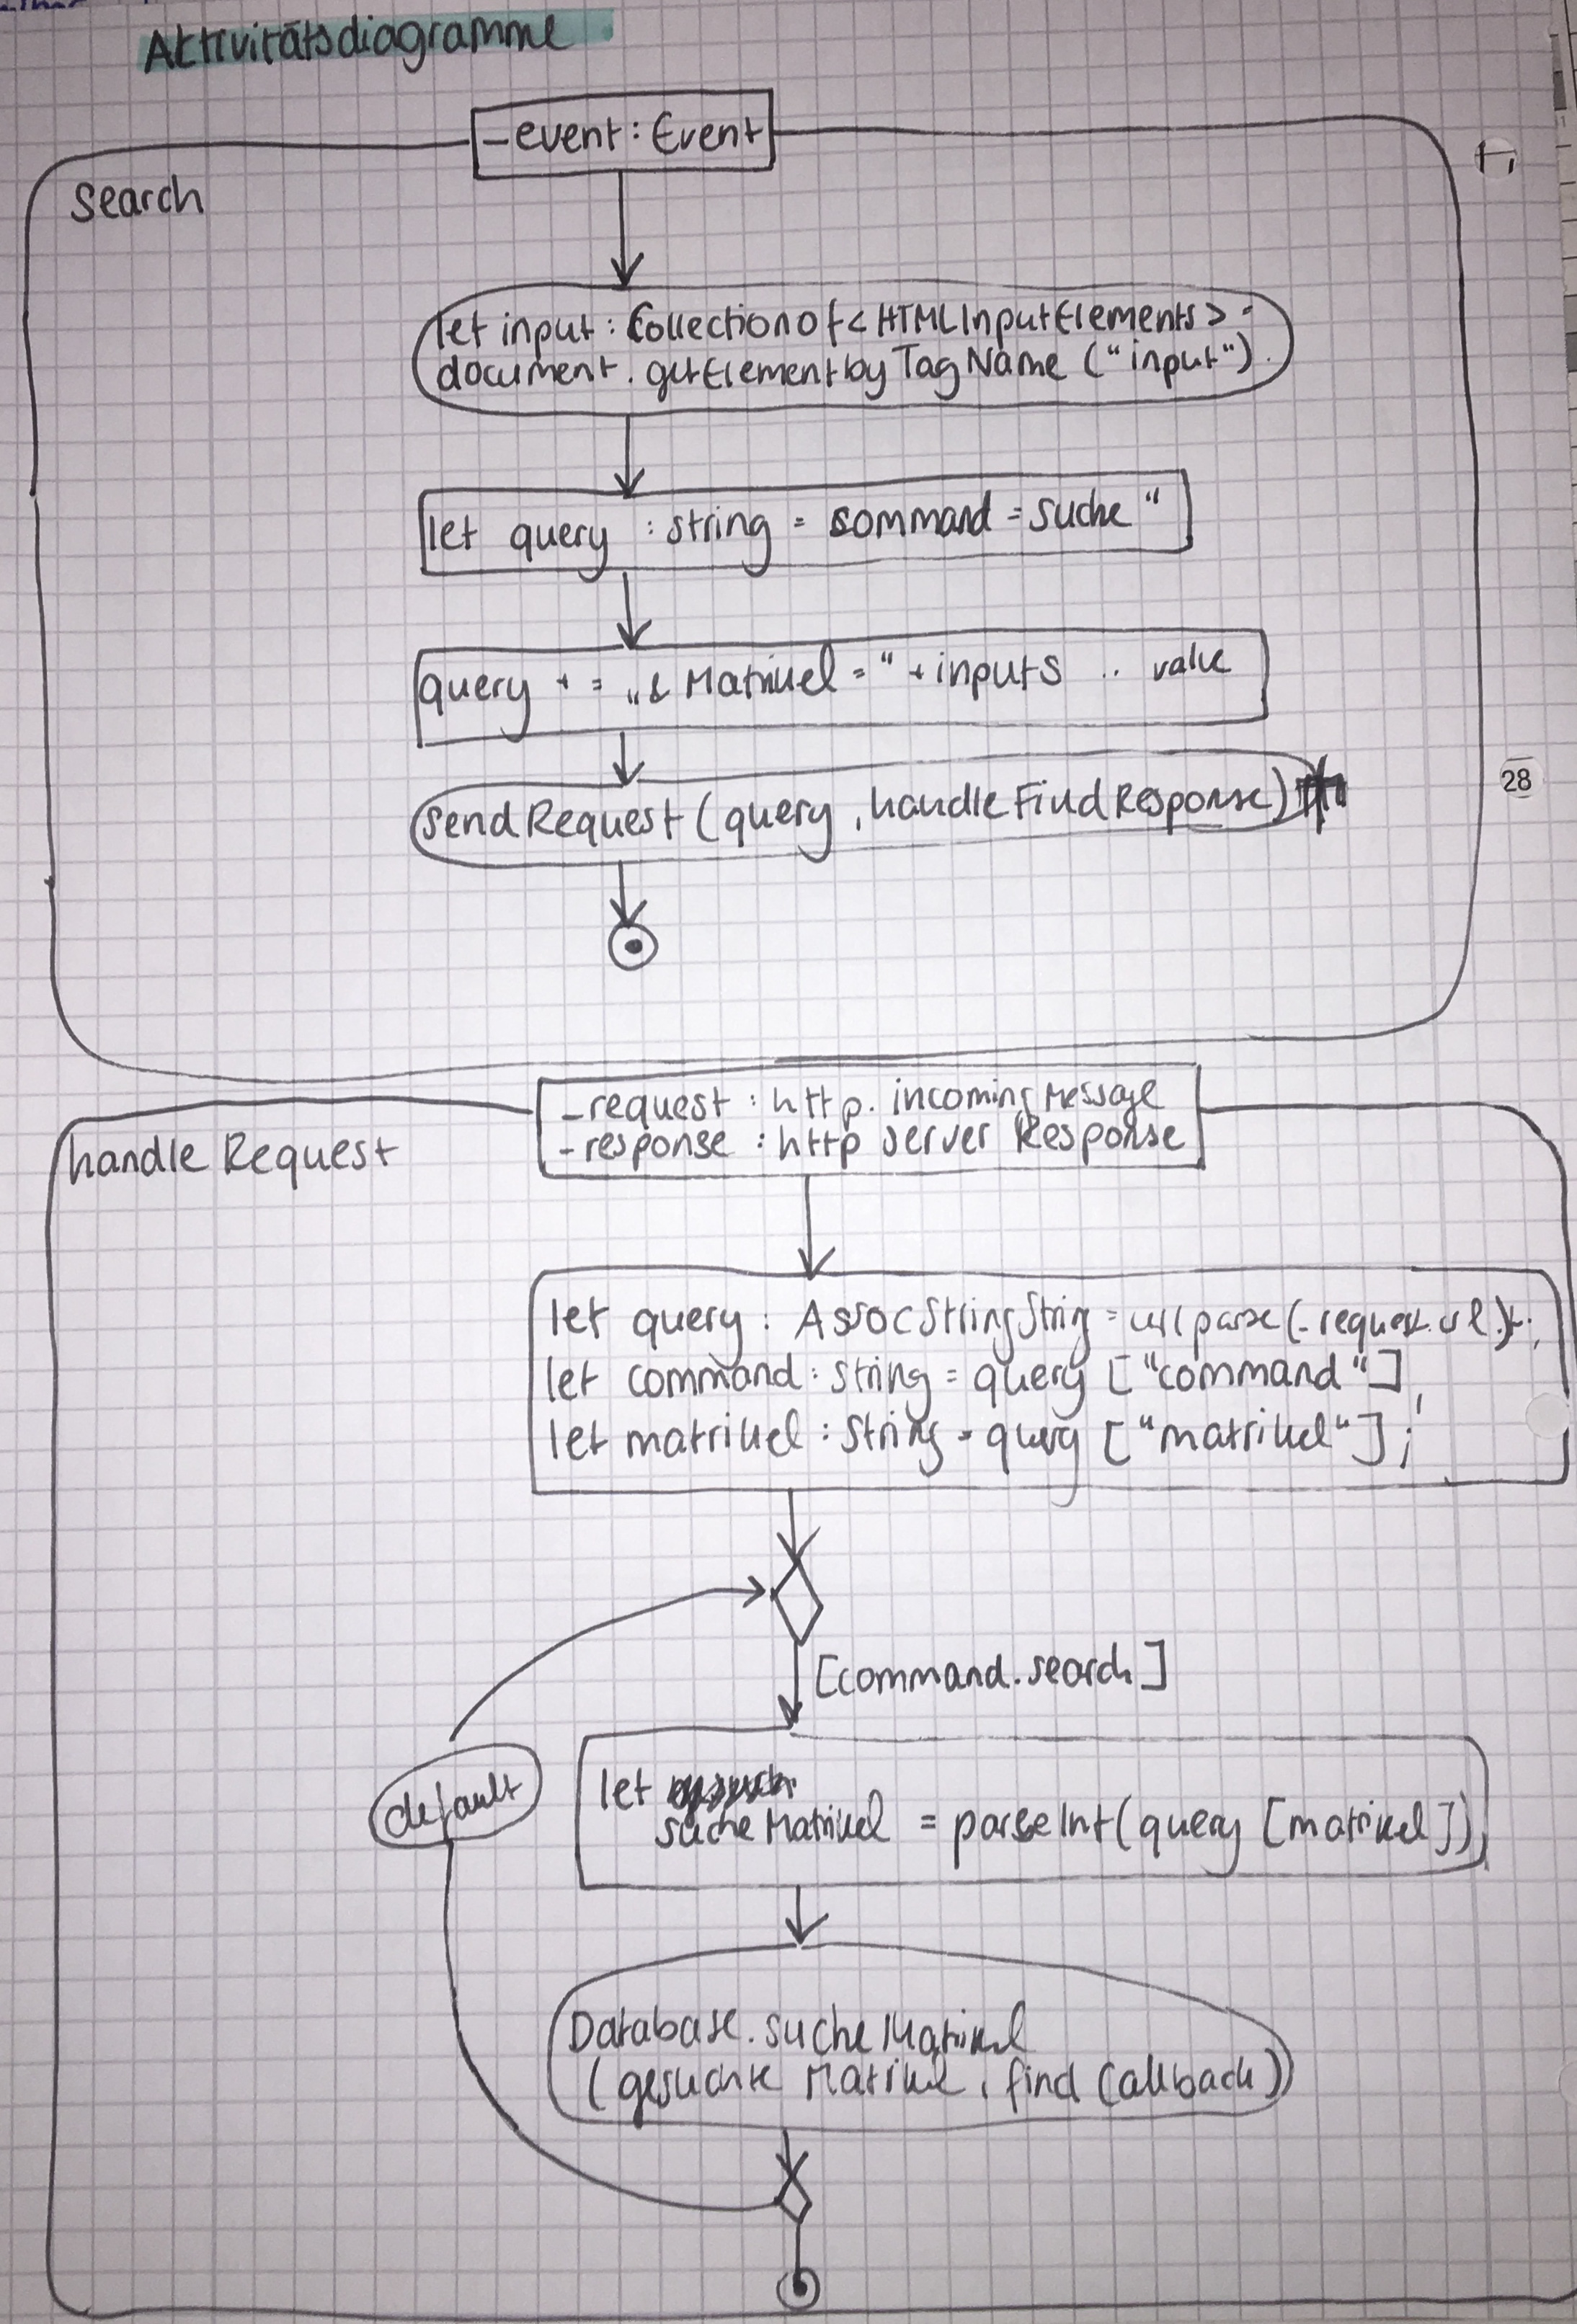 Aktivitätsdiagramme
_event: Event
Search
let input : Collectionof < HTMLInputElements > =
document. getElementbyTagName ("input").
let query : string = command = suche "
query + = „& Matrikel = " + inputs .. value
sendRequest (query , handleFindResponse)
28
_request : http. incoming Message
- response : http server Response
handle Request
let query : AssocStringString = url parse (_ request. url );
let command : string = query ["command"],
let matrikel : string = query ["matrikel"];
[command.search]
default
let
suche Matrikel = parseInt(query [matrikel])
Database. suche Matrikel
(gesuchte Matrikel , find Callback))